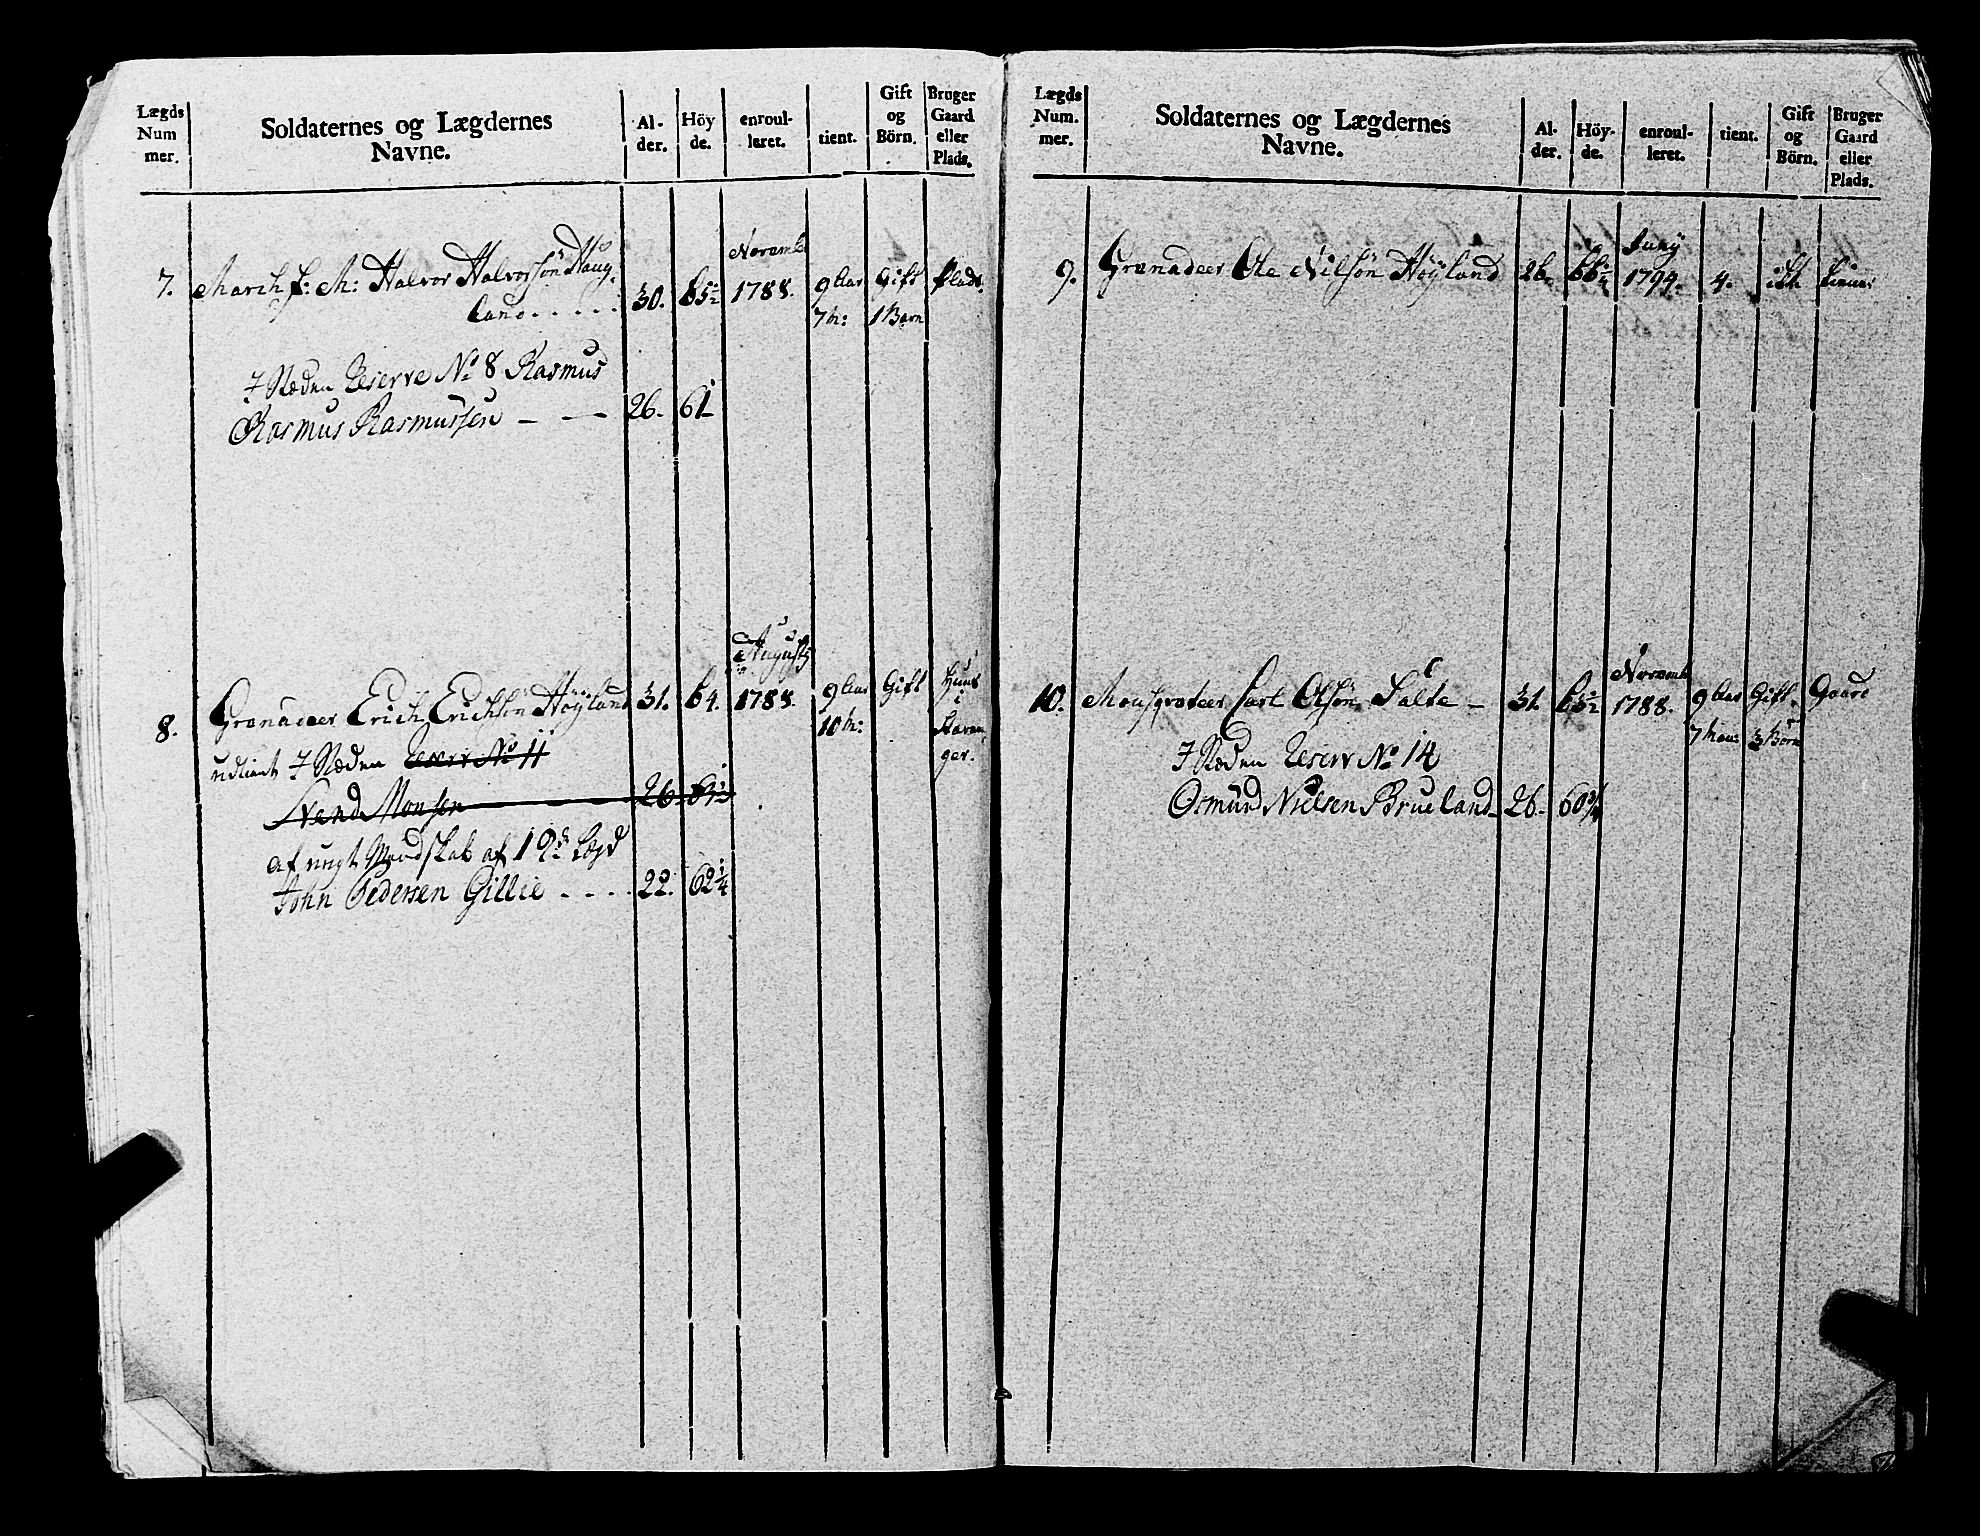 Lægds Num mer. Soldaternes og Lægdernes Navne. Al- der. Höy de. enroul- leret. tient. Gift og Börn. Bruger Gaard eller Plads.
Novembr
7. March f: M: Halvor Halvorsön Haug-
land..... 30. 65½ 1788. 9 Aar Gift Plads.
7 M: 1 Barn
I Stæden Reserve No 8 Rasmus
Rasmus Rasmussen — — 26. 61
Augusty
8. Granadeer Erich Erichsön Höyland 31. 64. 1788. 9 Aar Gift Huus
10 M: i
Stavan
ger.
udtient I Stæden Reserv No 11
Svend Monsen 26 61½
af ungt Mandskab af 19de Lægd
John Pedersen Gillie .... 22. 62¼
Lægds Num. mer. Soldaternes og Lægdernes Navne. Al- der. Höy- de. enroul- leret. tient. Gift og Börn. Bruger Gaard eller Plads.
Juny
9. Granadeer Ole Nilsön Höyland 26. 66¼ 1794. 4. ist. tiener
Novemb
10. Mousqvateer Carl Olsön Salte — 31. 63½ 1788. 9 Aar Gift. Gaard
7 Man: 3 Börn
I Stæden Reserv No 14
Osmund Nielsen Brueland 26. 60¾